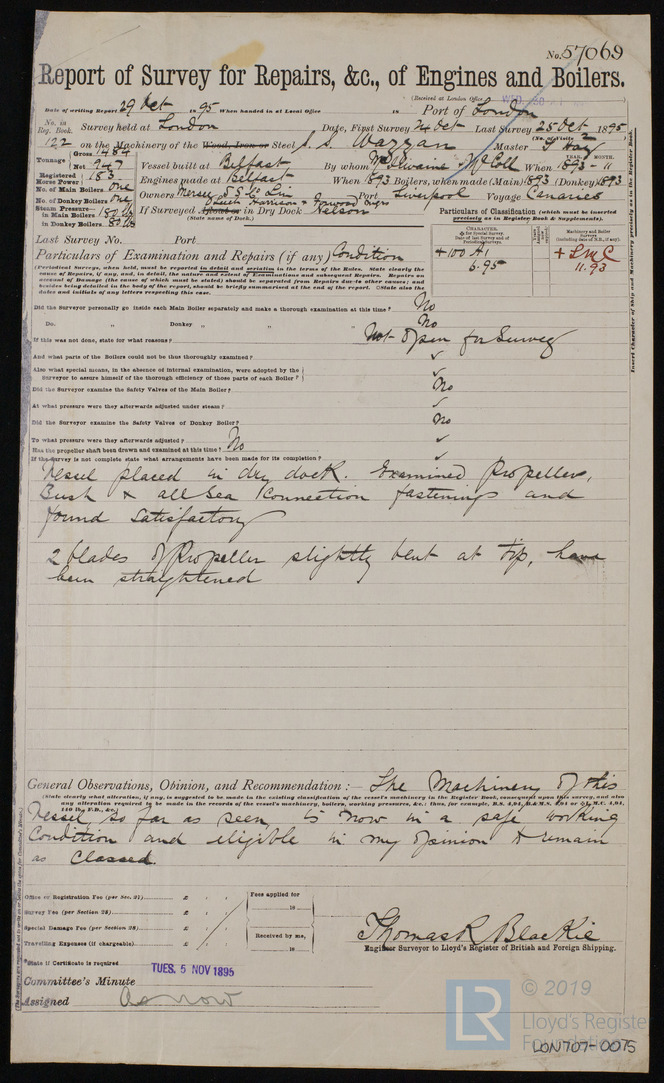 No. 57069
Report of Survey for Repairs, &c., of Engines and Boilers.
(Received at London Office WED. 30
Date of writing Report 29 Oct 1895 When handed in at Local Office 18 Port of London
No. in Reg. Book. Survey held at London Date, First Survey 24 Oct Last Survey 25 Oct 1895
(No. of Visits 2)
122 on the Machinery of the Wood, Iron or Steel S. S. Wazzan Master J Hay
Tonnage Gross 1484
Net 947
Vessel built at Belfast By whom McIlwaine & McColl When 1893 - 11
YEAR. MONTH.
Registered Horse Power 183
Engines made at Belfast When 1893 Boilers, when made (Main) 1893 (Donkey) 1893
No. of Main Boilers one
No. of Donkey Boilers one
Owners Mersey S S Co Lim Port Liverpool Voyage Canaries
Steam Pressure—
in Main Boilers 180 lb
in Donkey Boilers 80 lb
If Surveyed Afloat or in Dry Dock Nelson
(State name of Dock.)
Particulars of Classification (which must be inserted precisely as in Register Book & Supplements).
Last Survey No. Port
CHARACTER.
for Special Survey.
Date of last Survey and of Periodical Surveys.
Machinery and Boiler Surveys
(including date of N.B., if any).
Particulars of Examination and Repairs (if any) Condition
+ 100 A1
6.95
+ LMC
11.93
(Periodical Surveys, when held, must be reported in detail and seriatim in the terms of the Rules. State clearly the
cause of Repairs, if any, and, in detail, the nature and extent of Examinations and subsequent Repairs. Repairs on
account of Damage (the cause of which must be stated) should be separated from Repairs due to other causes; and
besides being detailed in the body of the report, should be briefly summarised at the end of the report. State also the
dates and initials of any letters respecting this case.
Insert Character of Ship and Machinery precisely as in the Register Book.
Did the Surveyor personally go inside each Main Boiler separately and make a thorough examination at this time? No
Do. " Donkey " " " No
If this was not done, state for what reasons? Not open for Survey
And what parts of the Boilers could not be thus thoroughly examined? ✓
Also what special means, in the absence of internal examination, were adopted by the
Surveyor to assure himself of the thorough efficiency of those parts of each Boiler? ✓
Did the Surveyor examine the Safety Valves of the Main Boiler? No
At what pressure were they afterwards adjusted under steam? ✓
Did the Surveyor examine the Safety Valves of Donkey Boiler? No
To what pressure were they afterwards adjusted? ✓
Has the propeller shaft been drawn and examined at this time? No
If the Survey is not complete state what arrangements have been made for its completion? ✓
Vessel placed in dry dock. Examined Propeller,
Bush & all Sea Connection fastenings and
found satisfactory
2 blades of Propeller slightly bent at tip, have
been straightened
General Observations, Opinion, and Recommendation :— The Machinery of this
(State clearly what alteration, if any, is suggested to be made in the existing classification of the vessel's machinery in the Register Book, consequent upon this survey, and also
any alteration required to be made in the records of the vessel's machinery, boilers, working pressures, &c.: thus, for example, B.S. 4,94, B.&M.S. 4,94 or L.M.C. 4,94,
140 lb., F.D., &c.)
Vessel so far as seen, is now in a safe working
Condition and eligible in my opinion to remain
as Classed.
Office or Registration Fee (per Sec. 27) £ : :
Survey Fee (per Section 28) £ : :
Special Damage Fee (per Section 28) £ : :
Travelling Expenses (if chargeable) £ : :
Fees applied for
18
Received by me,
18
Thomas R Blackie
Engineer Surveyor to Lloyd's Register of British and Foreign Shipping.
State if Certificate is required
Committee's Minute TUES. 5 NOV 1895
Assigned As now
LR
© 2019
Lloyd's Register
Foundation
LON707-0075